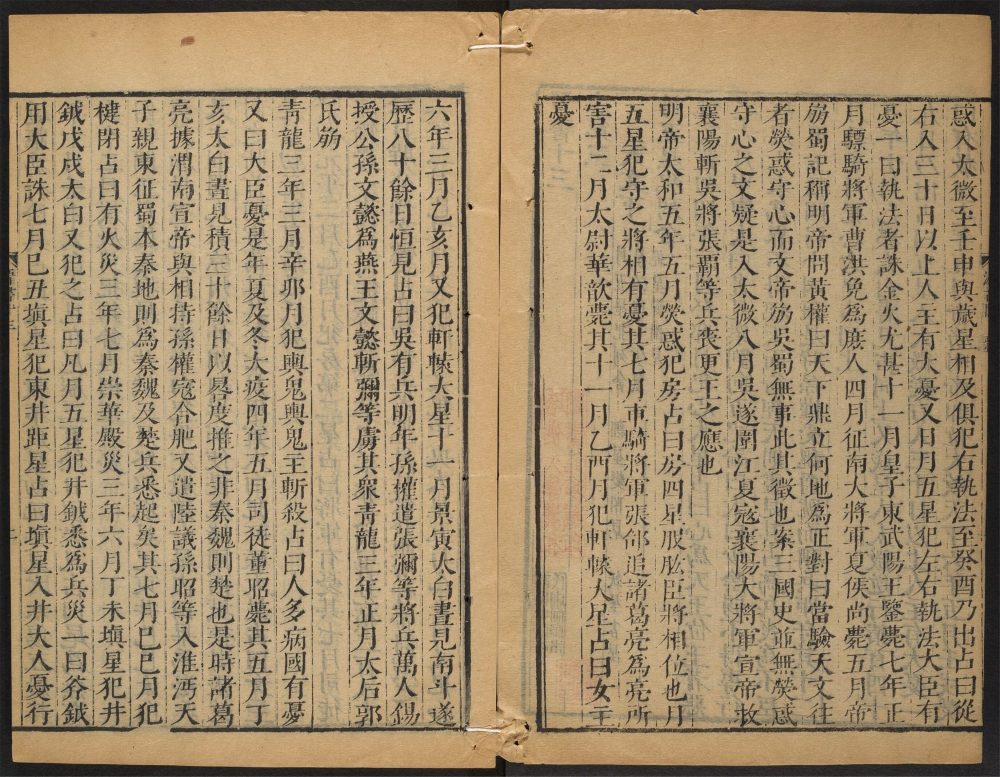 惑入太微至壬申與歲星相及俱犯右執法至癸酉乃出占曰從
右入三十日以上人主有大憂又日月五星犯左右執法大臣有
憂一曰執法者誅金火尤甚十一月皇子東武陽王鑒薨七年正
月驃騎將軍曹洪免為庶人四月征南大將軍夏侯尚薨五月帝
崩蜀記稱明帝問黃權曰天下鼎立何地為正對曰當驗天文往
者熒惑守心而文帝崩吳蜀無事此其徵也案三國史並無熒惑
守心之文疑是入太微八月吳遂圍江夏寇襄陽大將軍宣帝救
襄陽斬吳將張霸等兵喪更王之應也
明帝太和五年五月熒惑犯房占曰房四星股肱臣將相位也月
五星犯守之將相有憂其七月車騎將軍張郃追諸葛亮為亮所
害十二月太尉華歆薨其十一月乙酉月犯軒轅大星占曰女主
憂
六年三月乙亥月又犯軒轅大星十一月景寅太白晝見南斗遂
歷八十餘日恒見占曰吳有兵明年孫權遣張彌等將兵萬人錫
授公孫文懿為燕王文懿斬彌等虜其衆青龍三年正月太后郭
氏崩
青龍三年三月辛卯月犯輿鬼輿鬼主斬殺占曰人多病國有憂
又曰大臣憂是年夏及冬大疫四年五月司徒董昭薨其五月丁
亥太白晝見積三十餘日以晷度推之非秦魏則楚也是時諸葛
亮據渭南宣帝與相持孫權寇合肥又遣陸議孫昭等入淮沔天
子親東征蜀本秦地則為秦魏及楚兵悉起矣其七月己巳月犯
楗閉占曰有火災三年七月崇華殿災三年六月丁未塡星犯井
鉞戊戌太白又犯之占曰凡月五星犯井鉞悉為兵災一曰斧鉞
用大臣誅七月己丑塡星犯東井距星占曰塡星入井大人憂行